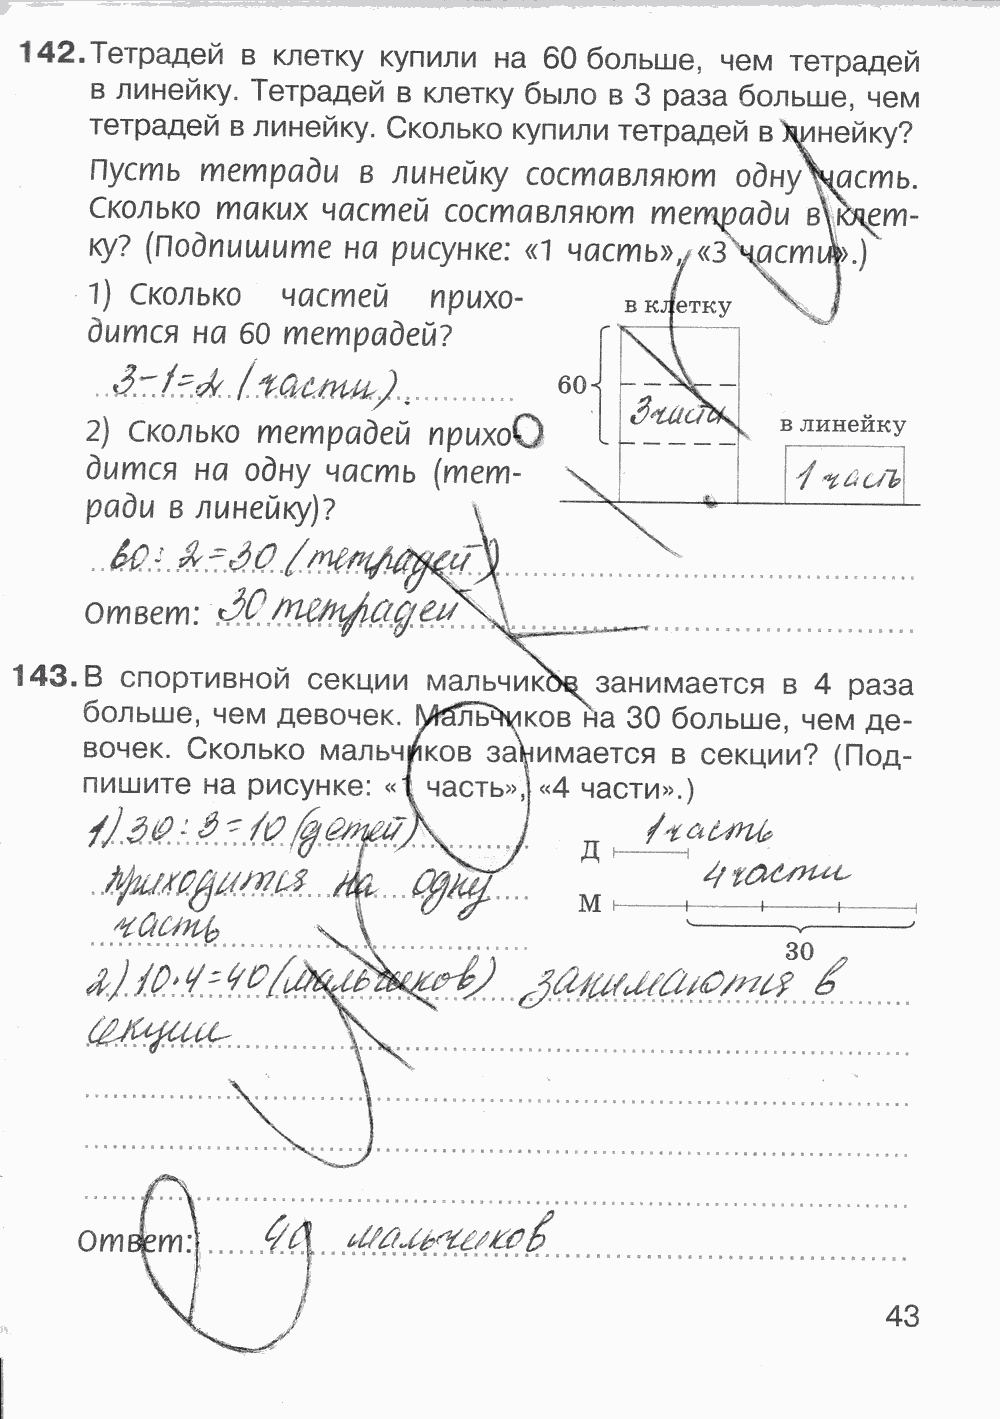 142. Тетрадей в клетку купили на 60 больше, чем тетрадей
в линейку. Тетрадей в клетку было в 3 раза больше, чем
тетрадей в линейку. Сколько купили тетрадей в линейку?
Пусть тетради в линейку составляют одну часть.
Сколько таких частей составляют тетради в клет-
ку? (Подпишите на рисунке: «1 часть», «3 части».)
1) Сколько частей прихо-
дится на 60 тетрадей?
3-1=2 (части).
2) Сколько тетрадей прихо-
дится на одну часть (тет-
ради в линейку)?
в клетку
60
3 части
в линейку
1 часть
60 : 2 = 30 (тетрадей)
Ответ: 30 тетрадей
143. В спортивной секции мальчиков занимается в 4 раза
больше, чем девочек. Мальчиков на 30 больше, чем де-
вочек. Сколько мальчиков занимается в секции? (Под-
пишите на рисунке: «1 часть», «4 части».)
1) 30 : 3 = 10 (детей)
приходится на одну
часть
Д 1 часть
М 4 части
30
2) 10·4=40 (мальчиков) занимаются в
секции
Ответ: 40 мальчиков
43